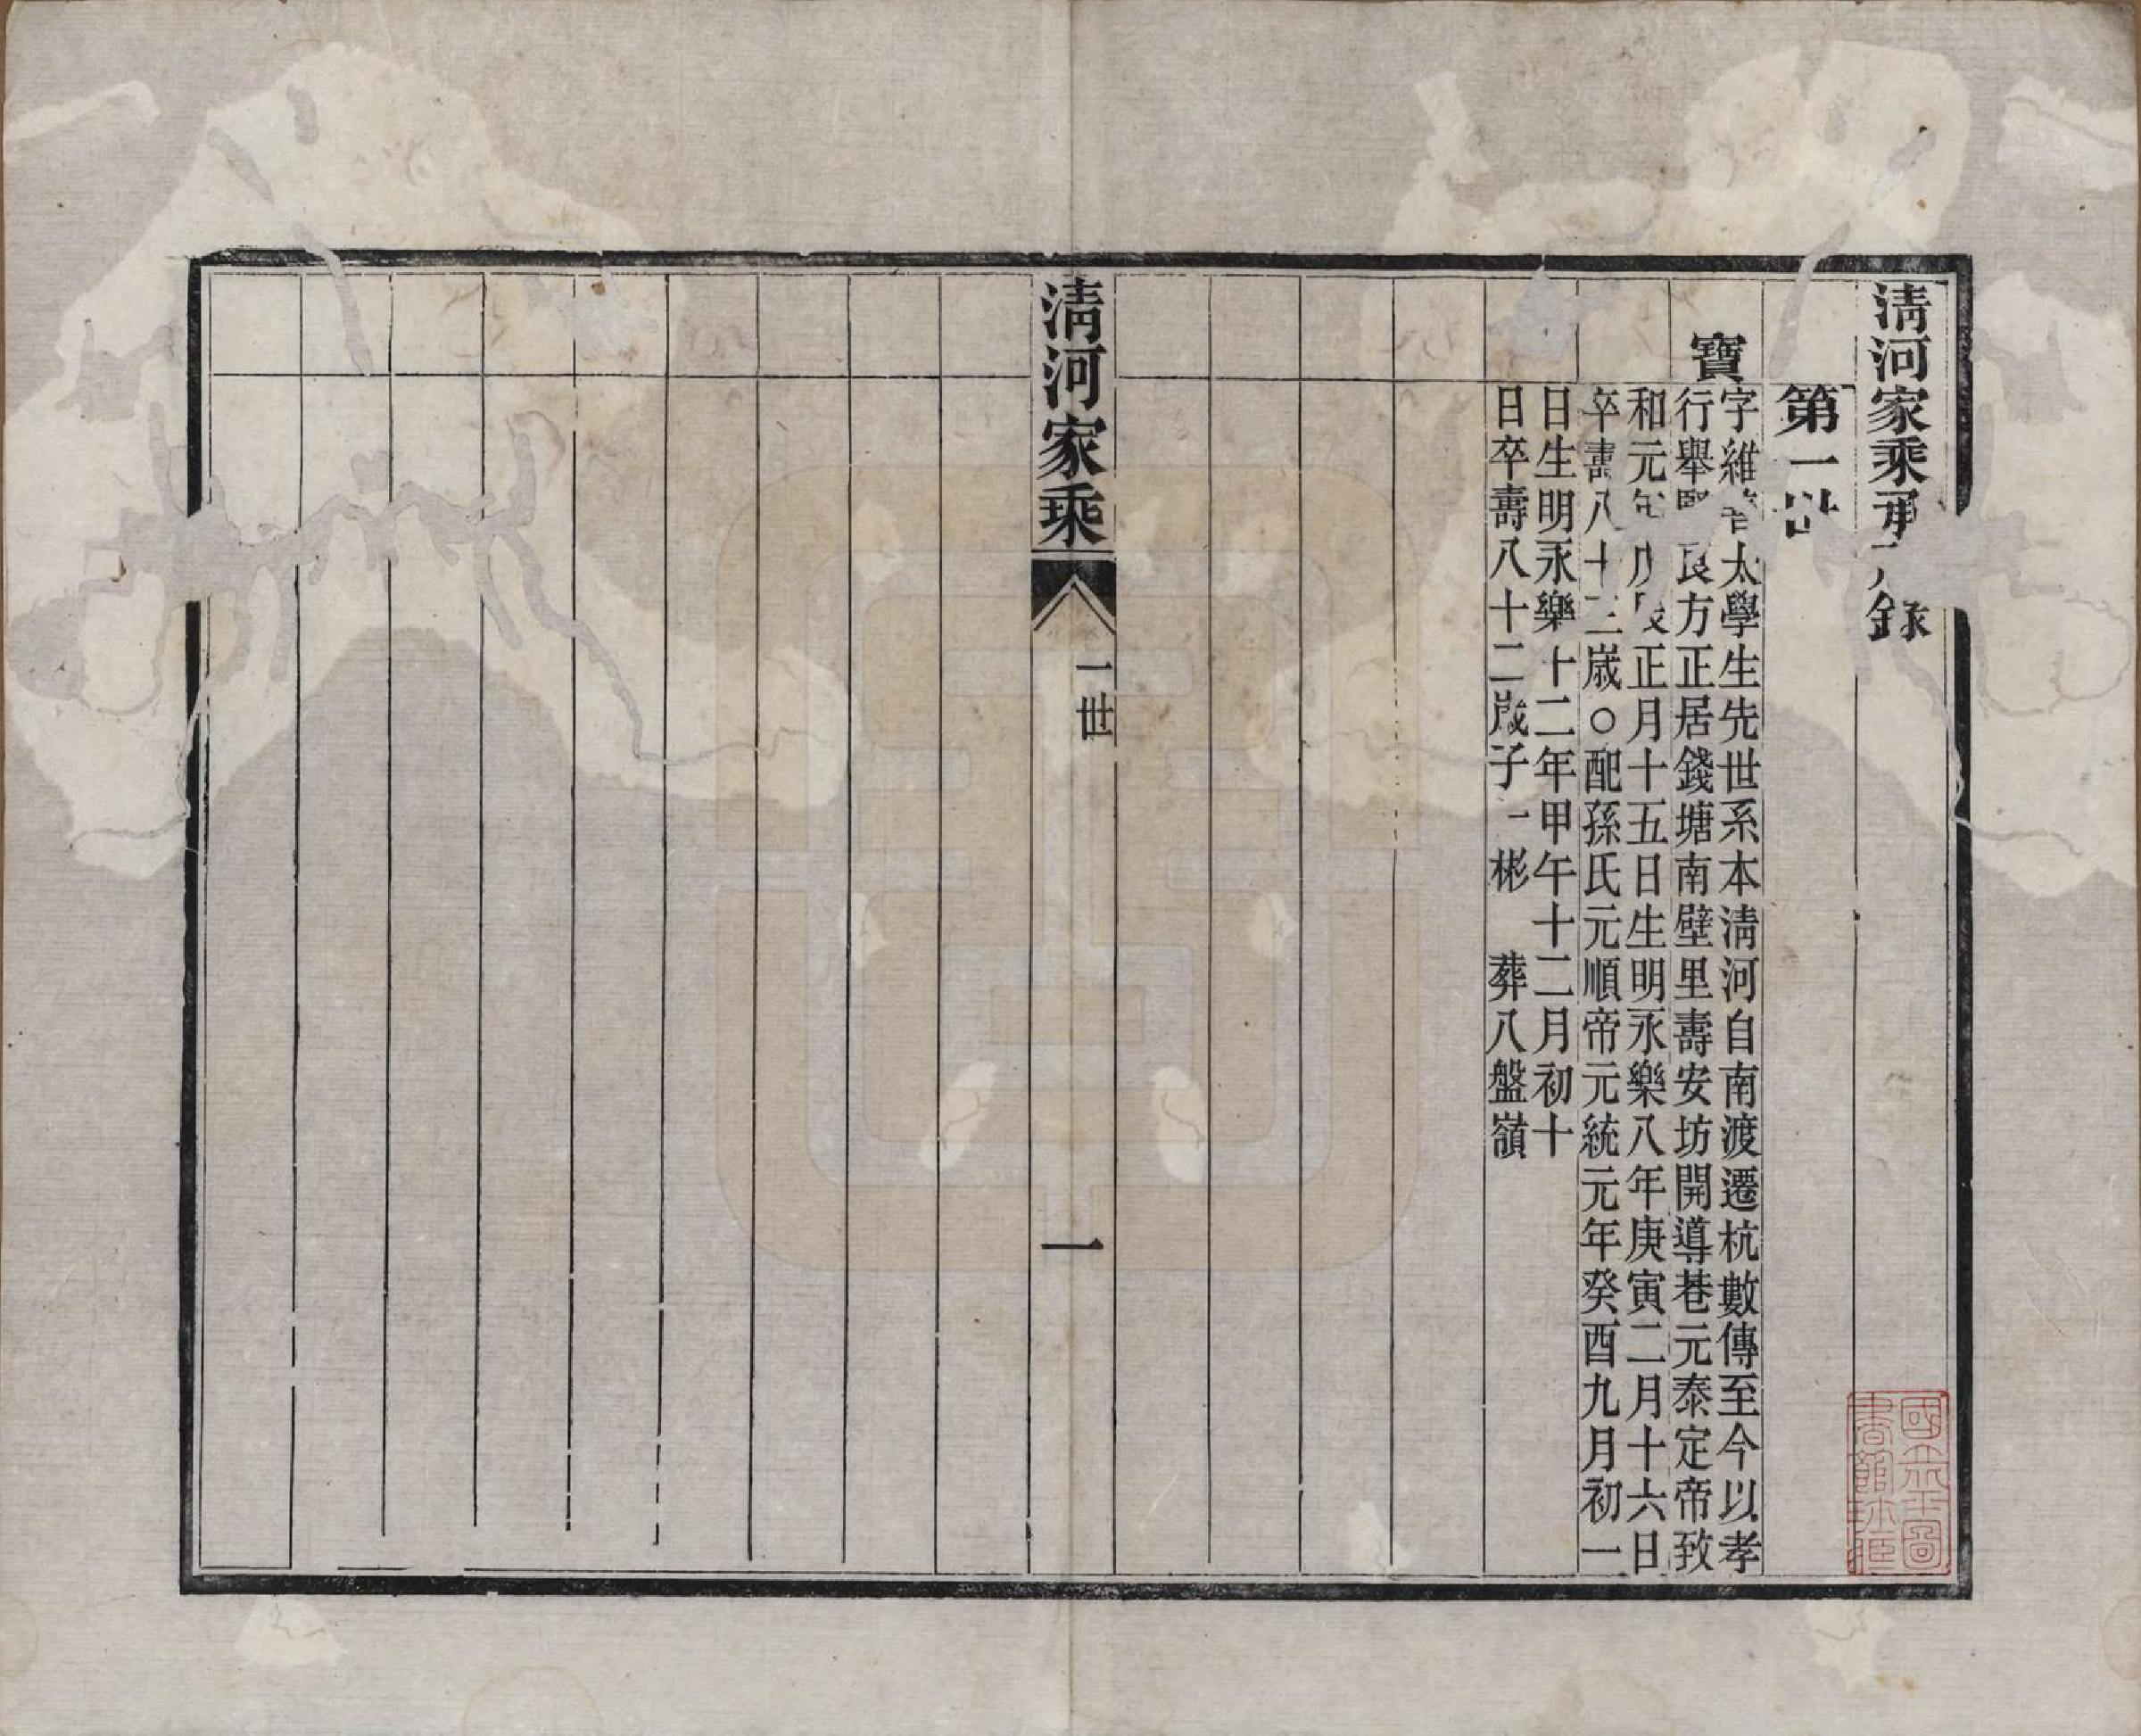 清河家乘 录
第一世
寶
字維 太學生先世系本清河自南渡遷杭數傳至今以孝
行舉 良方正居錢塘南壁里壽安坊開導巷元泰定帝致
和元年戊辰正月十五日生明永樂八年庚寅二月十六日
卒壽八十三歲○配孫氏元順帝元統元年癸酉九月初一
日生明永樂十二年甲午十二月初十
日卒壽八十二歲子一彬 葬八盤嶺
清河家乘
一世
一
國立北平圖
書館珍藏